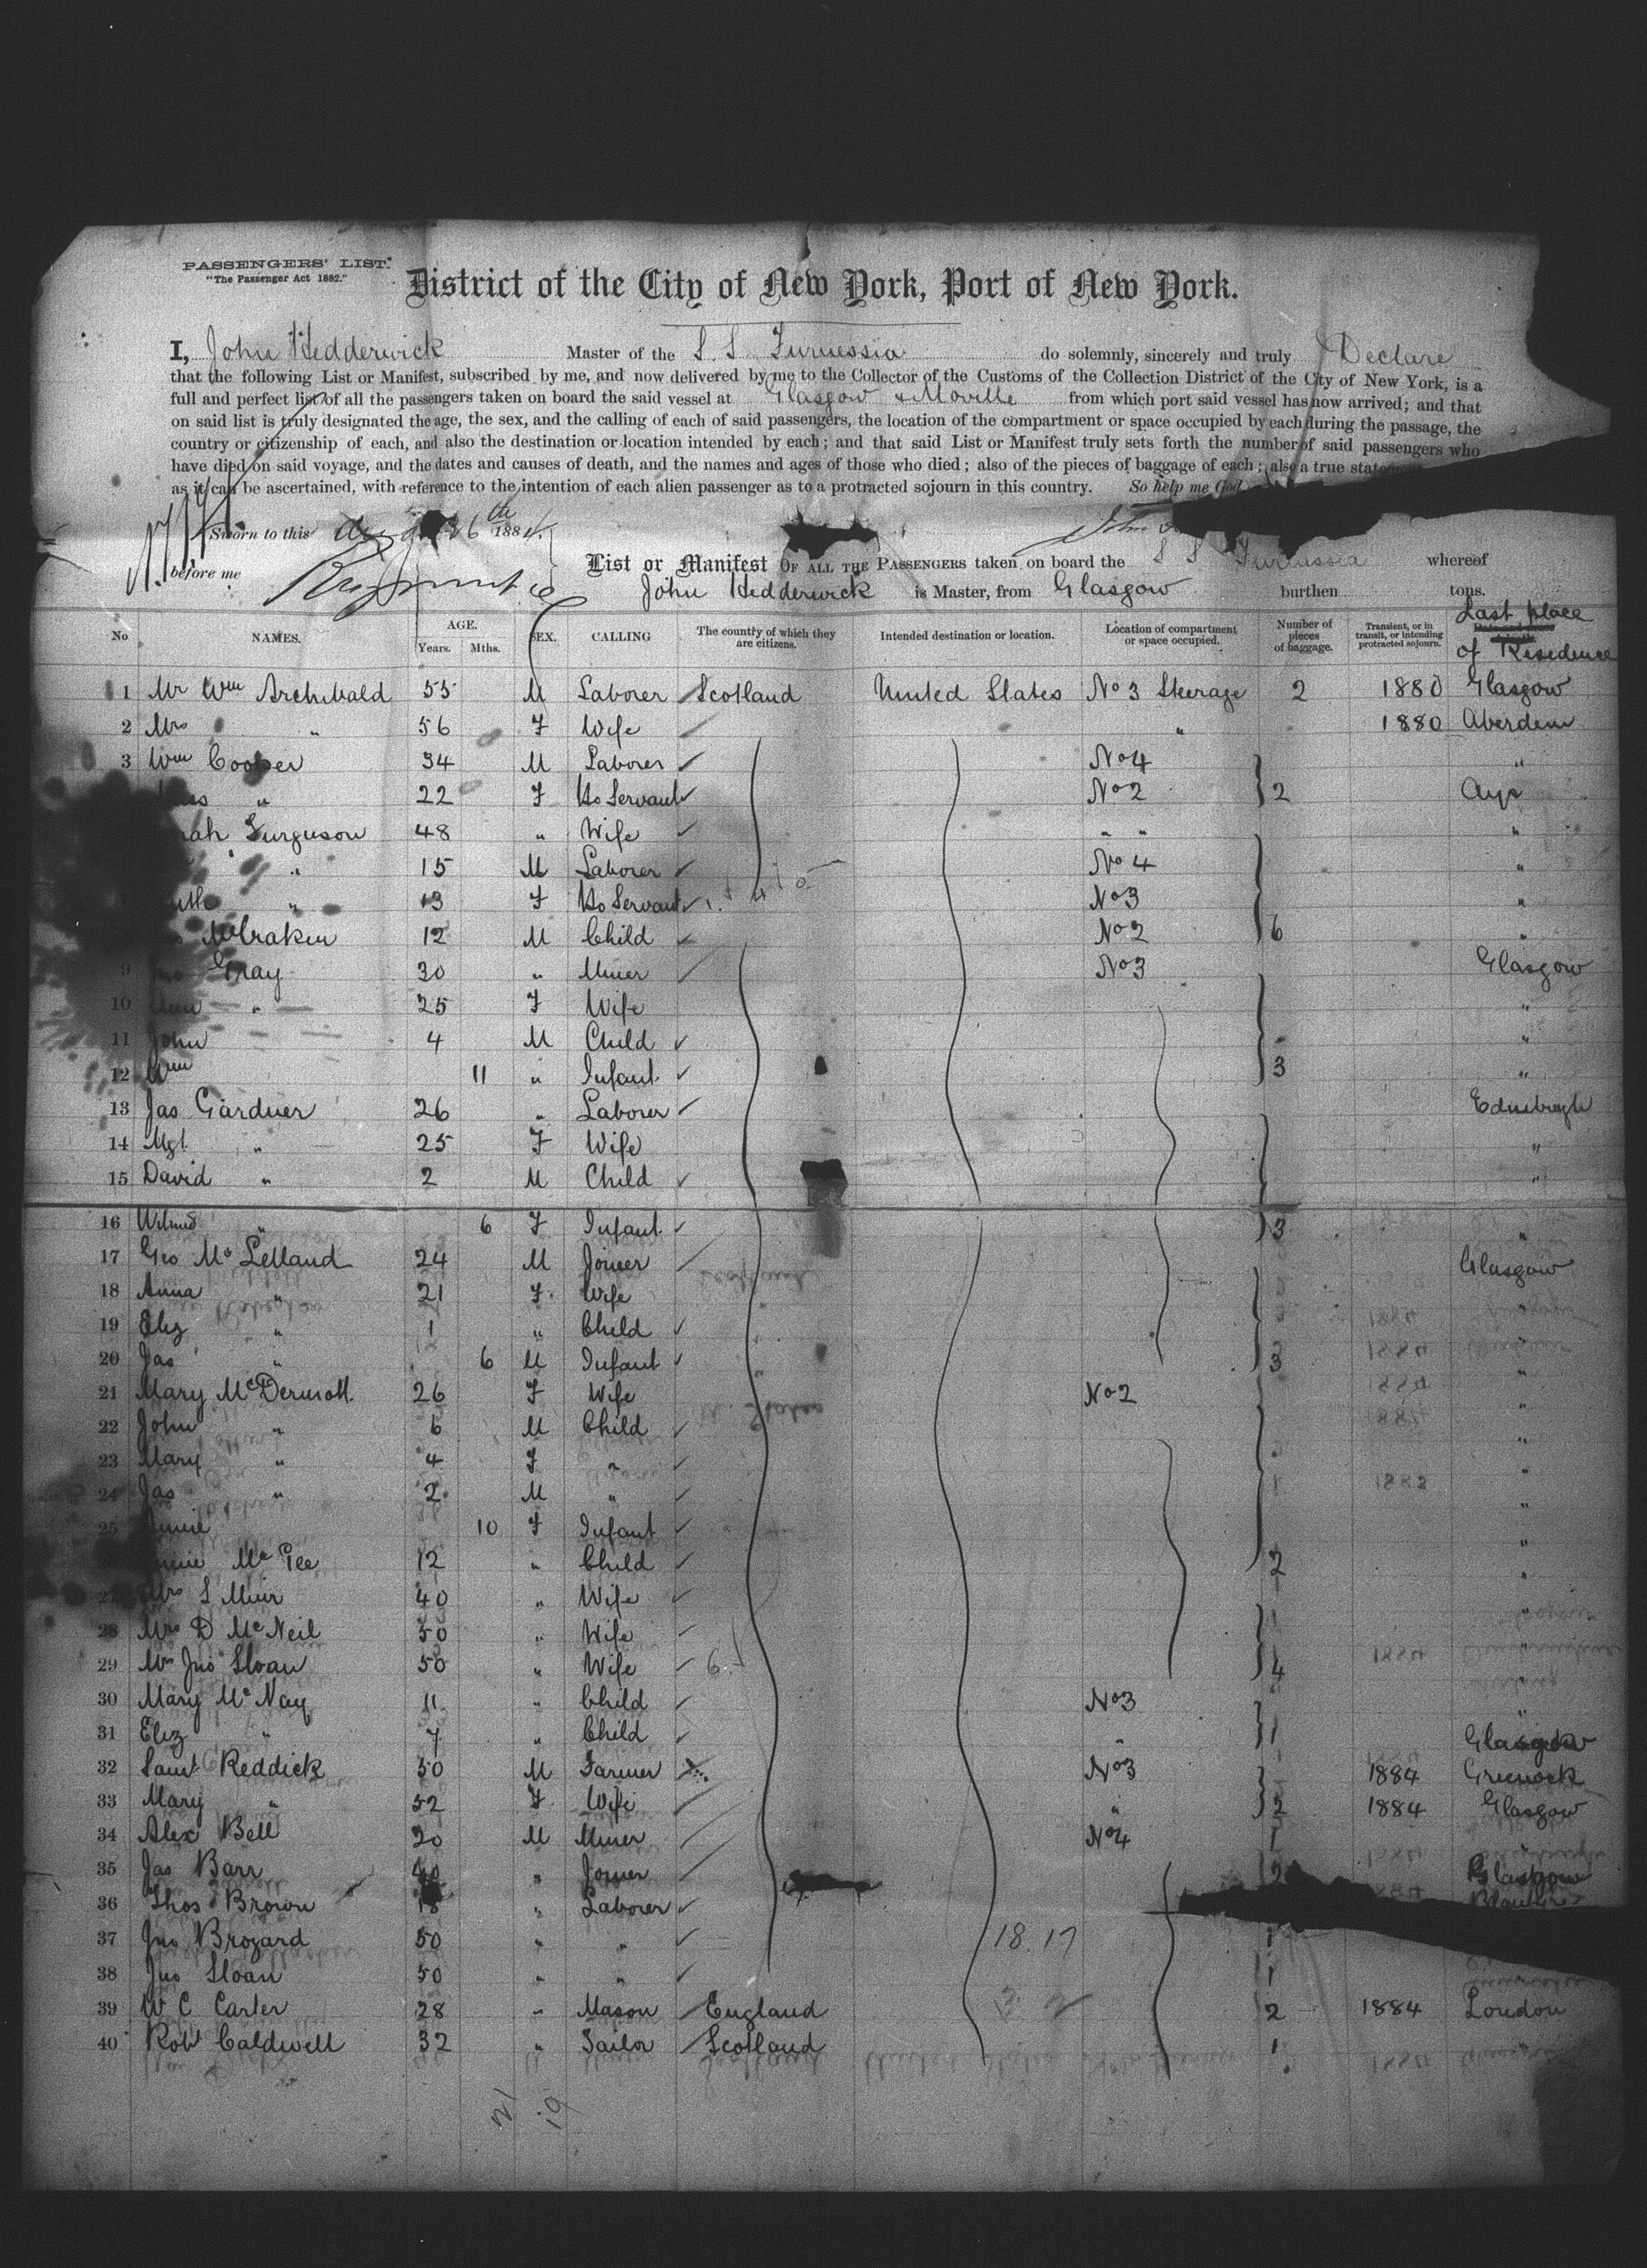 PASSENGERS' LIST.
"The Passenger Act 1882."
District of the City of New York, Port of New York.
I, John Hedderwick Master of the S. S. Furnessia do solemnly, sincerely and truly Declare
that the following List or Manifest, subscribed by me, and now delivered by me to the Collector of the Customs of the Collection District of the City of New York, is a
full and perfect list of all the passengers taken on board the said vessel at Glasgow & Moville from which port said vessel has now arrived; and that
on said list is truly designated the age, the sex, and the calling of each of said passengers, the location of the compartment or space occupied by each during the passage, the
country or citizenship of each, and also the destination or location intended by each; and that said List or Manifest truly sets forth the number of said passengers who
have died on said voyage, and the dates and causes of death, and the names and ages of those who died; also of the pieces of baggage of each; also a true
as it can be ascertained, with reference to the intention of each alien passenger as to a protracted sojourn in this country. So help me God
Sworn to this Aug 26th 1884. John
before me
List or Manifest OF ALL THE PASSENGERS taken on board the S S Furnessia whereof
John Hedderwick is Master, from Glasgow burthen tons.
No NAMES. AGE. Years. Mths. SEX. CALLING The country of which they are citizens. Intended destination or location. Location of compartment or space occupied. Number of pieces of baggage. Transient, or in transit, or intending protracted sojourn. Last place of Residence
1 Mr Wm Archibald 55 M Laborer Scotland United States No 3 Steerage 2 1880 Glasgow
2 Mrs " 56 F Wife " 1880 Aberdeen
3 Wm Cooper 34 M Laborer No 4 "
" 22 F Ho Servant No 2 2 Ayr
Furguson 48 " Wife " " "
" 15 M Laborer No 4 "
" 13 F Ho Servant No 3 "
McCraken 12 M Child No 2 6 "
9 Gray 30 " Miner No 3 Glasgow
10 Ann " 25 F Wife "
11 John 4 M Child "
12 Wm 11 " Infant 3 "
13 Jas Gardner 26 " Laborer Edinbrugh
14 Mgt " 25 F Wife "
15 David " 2 M Child "
16 " 6 F Infant 3 "
17 Geo McLelland 24 M Joiner Glasgow
18 Anna " 21 F Wife "
19 Eliz " 1 " Child "
20 Jas " 6 M Infant 3 "
21 Mary McDermott 26 F Wife No 2 "
22 John " 6 M Child "
23 Mary " 4 F " "
24 Jas " 2 M " "
25 10 F Infant "
Mc Gee 12 " Child 2 "
27 Mrs S Muir 40 " Wife "
28 Mrs D McNeil 50 " Wife "
29 Mrs Jno Sloan 50 " Wife 4 "
30 Mary McNay 11 " Child No 3 "
31 Eliz " 7 " Child " 1 Glasgow
32 Saml Reddick 50 M Farmer No 3 1884 Greenock
33 Mary " 52 F Wife " 2 1884 Glasgow
34 Alex Bell 20 M Miner No 4 1 "
35 Jas Barr 40 " Joiner 2 Glasgow
36 Thos Brown 18 " Laborer
37 Jno Brozard 50 " " 18.17 1
38 Jno Sloan 50 " " 1
39 W C Carter 28 " Mason England 2 1884 London
40 Robt Caldwell 32 " Sailor Scotland 1 "
21 19